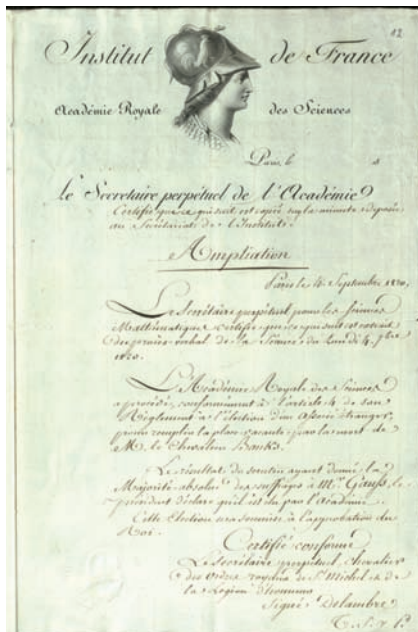 12
Institut de France
Académie Royale des Sciences
Paris, le
le Secrétaire perpétuel de l'Académie
Certifie que ce qui suit est copié sur la minute déposée
au Secrétariat de l'Institut.
Ampliation
Paris le 4 Septembre 1820.
Le Secrétaire perpétuel pour les Sciences
Mathématiques certifie que ce qui suit est extrait
du procès verbal de la Séance du Lundi 4 7bre
1820.
L'Académie Royale des Sciences
a procédé, conformément à l'article 4 de son
Règlement à l'élection d'un associé étranger,
pour remplir la place vacante par la mort de
M. le Chevalier Banks.
Le résultat du scrutin ayant donné la
Majorité absolue des suffrages à Mr. Gauss, le
président déclare qu'il est élu par l'académie.
Cette Election sera soumise à l'approbation du
Roi.
Certifié conforme
Le Secrétaire perpétuel, chevalier
des ordres royaux de St. Michel et de
la Légion d'honneur
Signé Delambre